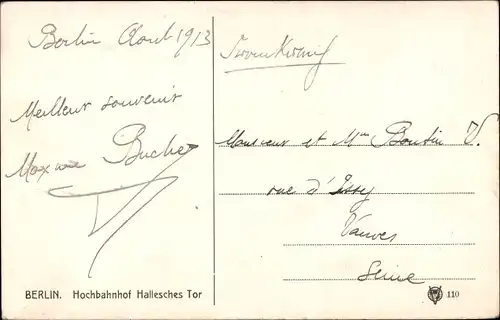 Berlin Août 1913
Meilleur souvenir
Maxime Bucher
Monsieur et Mme Boutin V.
rue d'Issy
Vanves
Seine
BERLIN. Hochbahnhof Hallesches Tor
110